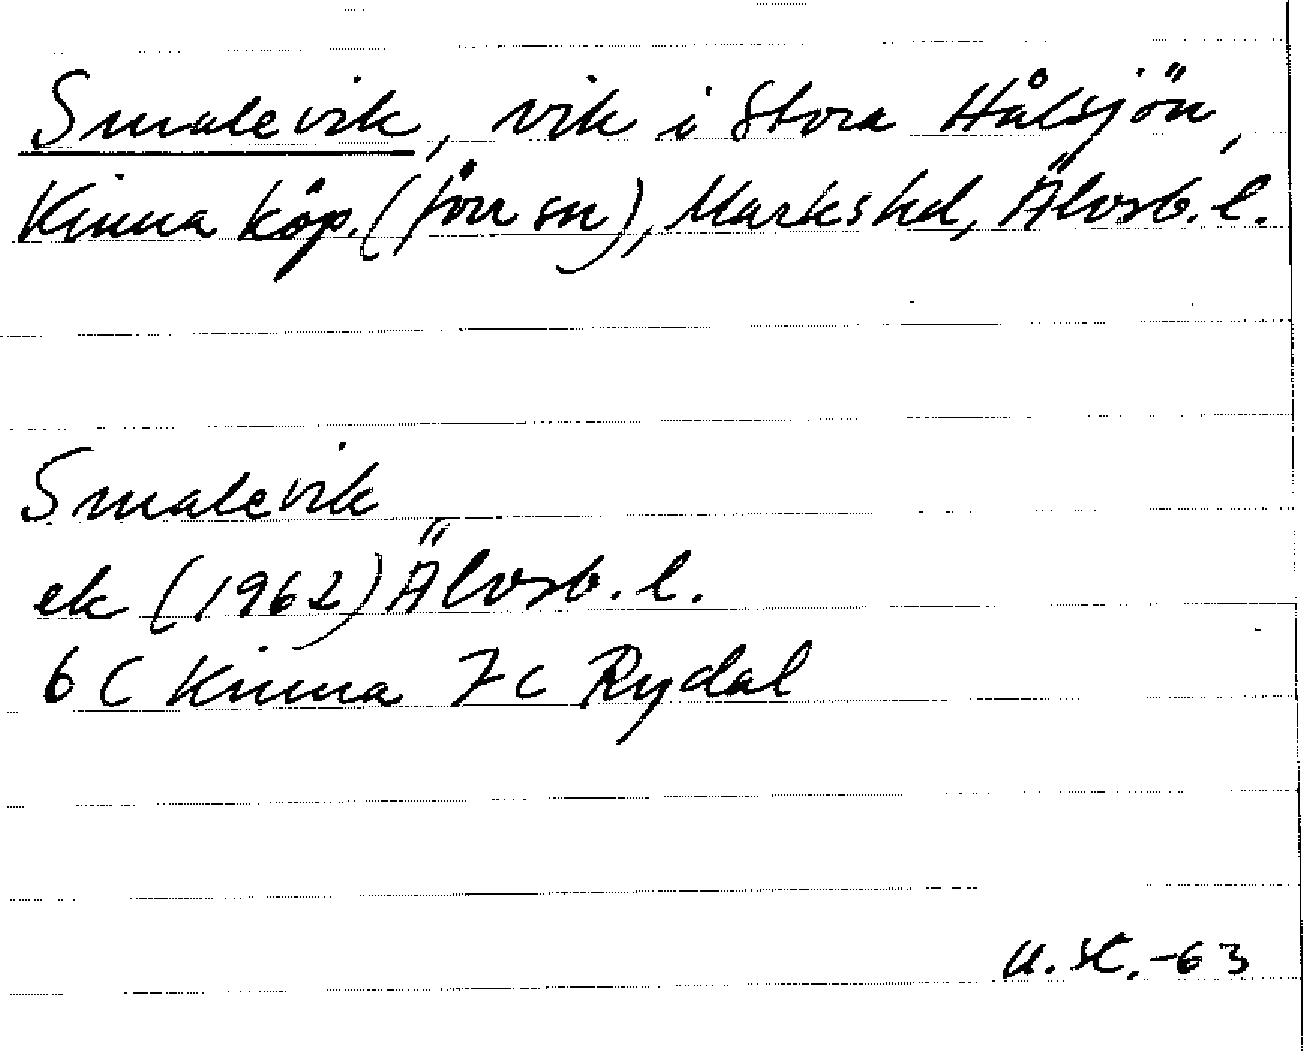 Smalevik, vik i Stora Hålsjön,
Kinna köp. (förr sn), Marks hd, Älvsb. l.
Smalevik
ek (1962) Älvsb. l.
6 C Kinna 7 c Rydal
U. H. -63